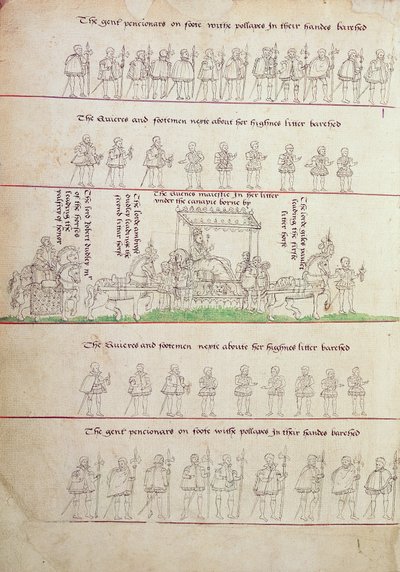 The gent pencionars on foote withe pollaxes In their handes barehed
The Quieres and footemen nexte about her highnes litter barehed
The lord Robert Dudley mr
of the horses
leading the
palfrey of honor
The lord ambrose
dudley leadinge the
second litter horse
The Quenes maiestie In her litter
under the canapie borne by
The lord giles paulet
leading the firste
litter horse
The Quieres and footemen nexte aboute her highnes litter barehed
The gent pencionars on foote withe pollaxes In their handes barehed